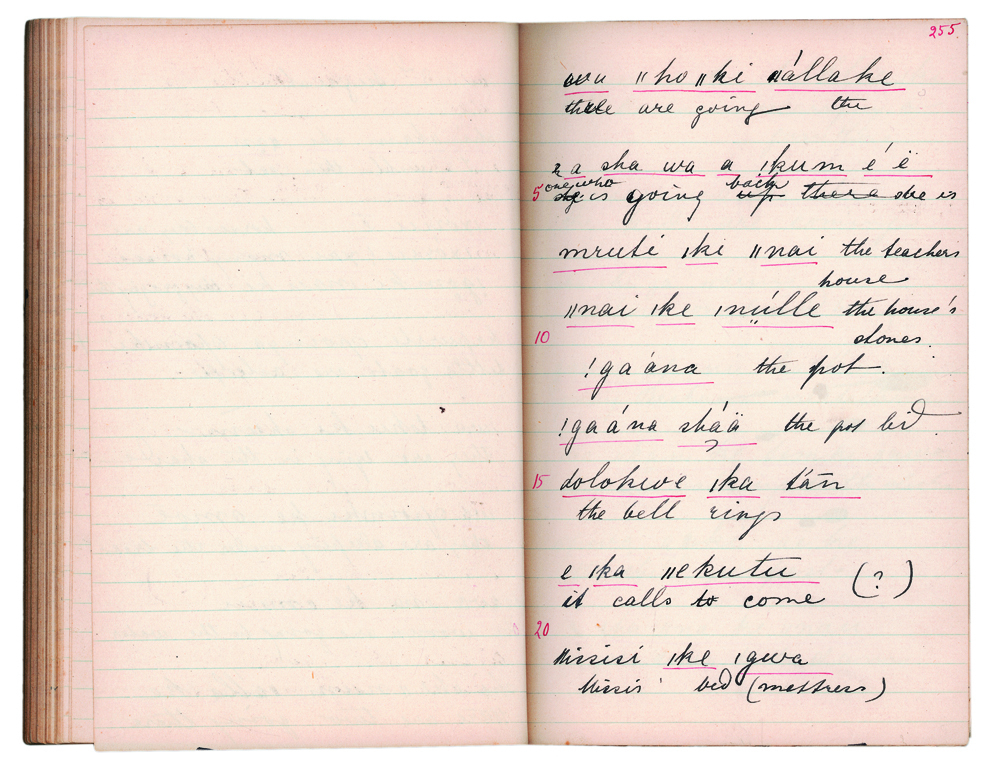 255
ǁho ǁki ǁállake
there are going the
a sha wa a ǀkum é ë
one who back
5 is going up there she is
mruti ǀki ǁnai the teachers
house
ǁnai ǀke ǀnúlle the house's
10 stones.
!gaána the pot.
!gaána sháä the pot lid
15 dolokwe ǀka tán
the bell rings
e ǀka ǁekutu (?)
it calls to come
20
Missisi ǀke ǀgwa
Missis' bed (mattress)